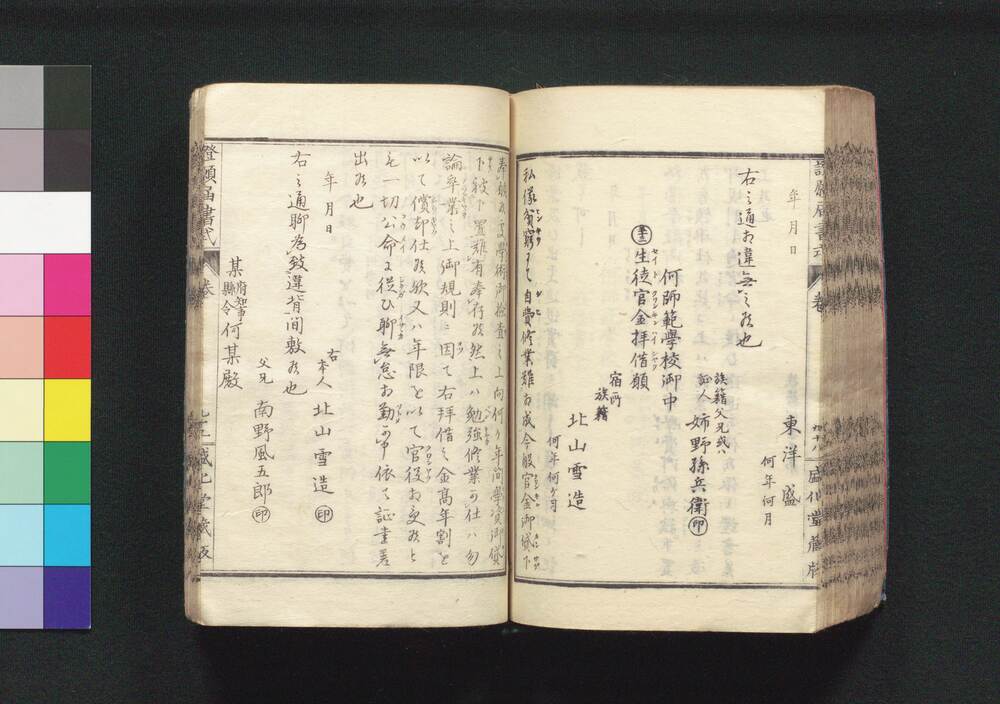 年月日
右之通相違無之候也
東洋盛
何年何月
族籍父兄或ハ
証人 姉野孫兵衛㊞
何師範學校御中
生徒官金拝借願
セイト クワンキン
宿所
族籍
北山雪造
何年何ヶ月
私儀貧窮ニテ自費修業難相成今般官金御貸下
奉願候處學術御検査之上向何ヶ年間學資御貸
下被下置難有奉存候然上ハ勉強修業可仕ハ勿
論卒業之上御規則ニ因テ右拝借之金高年割ヲ
以テ償却仕候欤又ハ年限ヲ以テ官役相交候ヒ
モ一切公命ニ從ひ聊無怠相勤可申依テ証書差
出候也
年月日
右本人 北山雪造㊞
右之通聊為致違背間敷候也
父兄 南野風五郎㊞
某府知事縣令何某殿
證願届書式
卷
盛化堂藏版